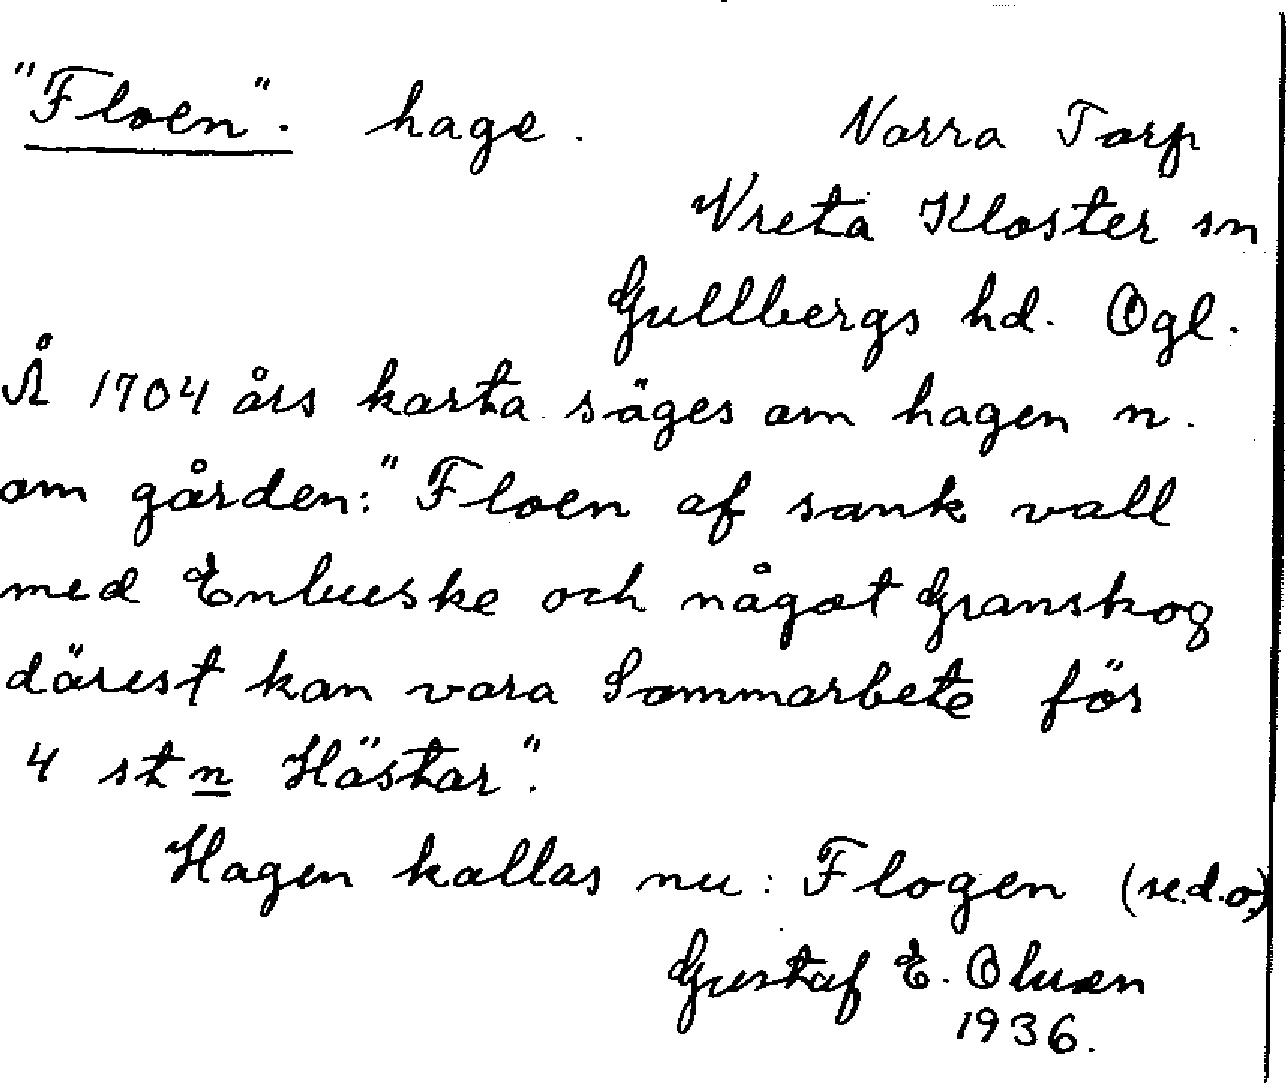 "Floen". hage. Norra Torp
Vreta Kloster sn
Gullbergs hd. Ögl.
Å 1704 års karta säges om hagen n.
om gården: "Floen af sank vall
med Enbuske och något Granskog
därest kan vara Sommarbete för
4 st n Hästar".
Hagen kallas nu: Flogen (se.d.o.)
Gustaf E. Olsson
1936.